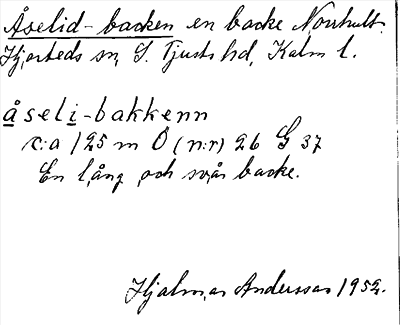 Åselid-backen en backe Norrhult.
Hjorteds sn, S. Tjusts hd, Kalm l.
åseli-bakkenn
c:a 125 m Ö (n:r) 26 G 37
En lång och svår backe.
Hjalmar Andersson 1952.